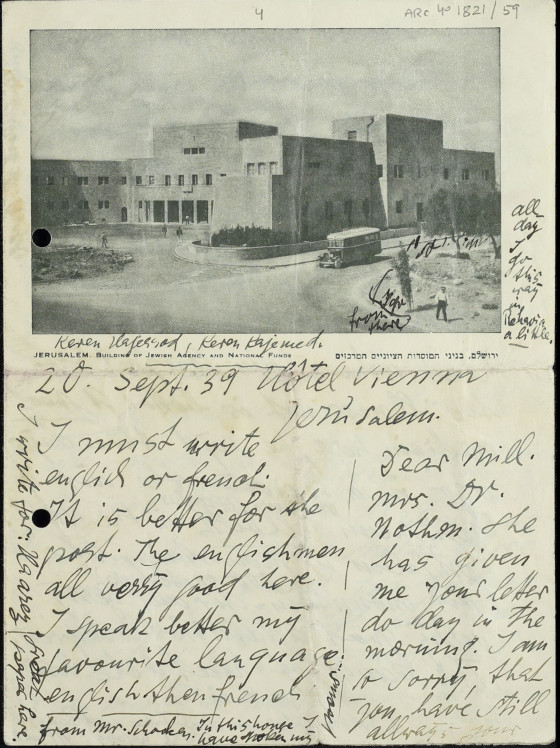 4
ARC 4° 1821/59
all
day
I
go
this
way
in
Rehavia
a little.
I go
from
there
Keren Hajessod, Keren Kajemed.
JERUSALEM. BUILDING OF JEWISH AGENCY AND NATIONAL FUNDS
ירושלים. בניני המוסדות הציוניים המרכזים
20. Sept. 39 Hôtel Vienna
Jerusalem.
I must write
english or french.
It is better for the
post. The englishmen
all verry good here.
I speak better my
favourite language:
english then french
from Mr. Schocken. In this house I
have
Dear Mill.
Mrs. Dr.
Nothm. She
has given
me your letter
do day in the
morning. I am
so sorry, that
you have still
allways your
I write for:
here.